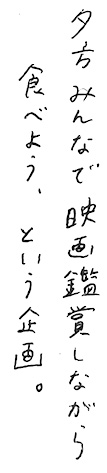 夕方みんなで映画鑑賞しながら
食べよう、という企画。